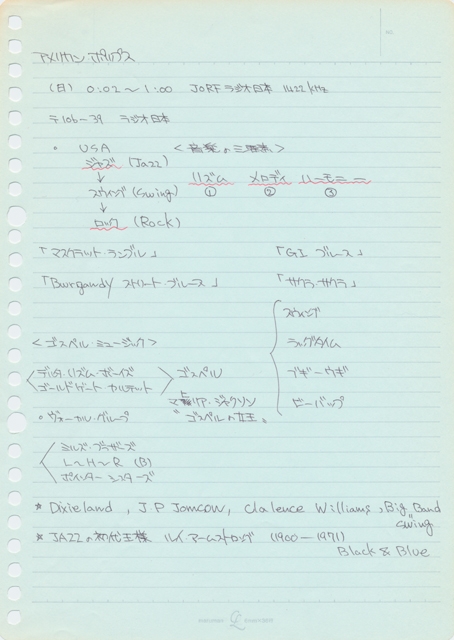 アメリカン ポップス
(日) 0:02〜1:00 JORF ラジオ日本 1422kHz
〒106-39 ラジオ日本
。 USA <音楽の三要素>
ジャズ (Jazz)
↓ リズム メロディ ハーモニー
スウィング (Swing) ① ② ③
↓
ロック (Rock)
「マスクラット・ランブル」 「G.I. ブルース」
「Burgandy ストリート・ブルース」 「サクラ・サクラ」
スウィング
<ゴスペル・ミュージック> ラグタイム
デルタ・リズム・ボーイズ ゴスペル ブギ・ウギ
ゴールドゲート カルテット
マヘリア・ジャクソン ビーバップ
。ヴォーカル・グループ "ゴスペルの女王"
ミルズ・ブラザーズ
L〜H〜R (B)
ポインター シスターズ
* Dixieland , J.P Jomcow, Clalence Williams , Big Band
swing
* JAZZの初代王様 ルイ アームストロング (1900―1971)
Black & Blue